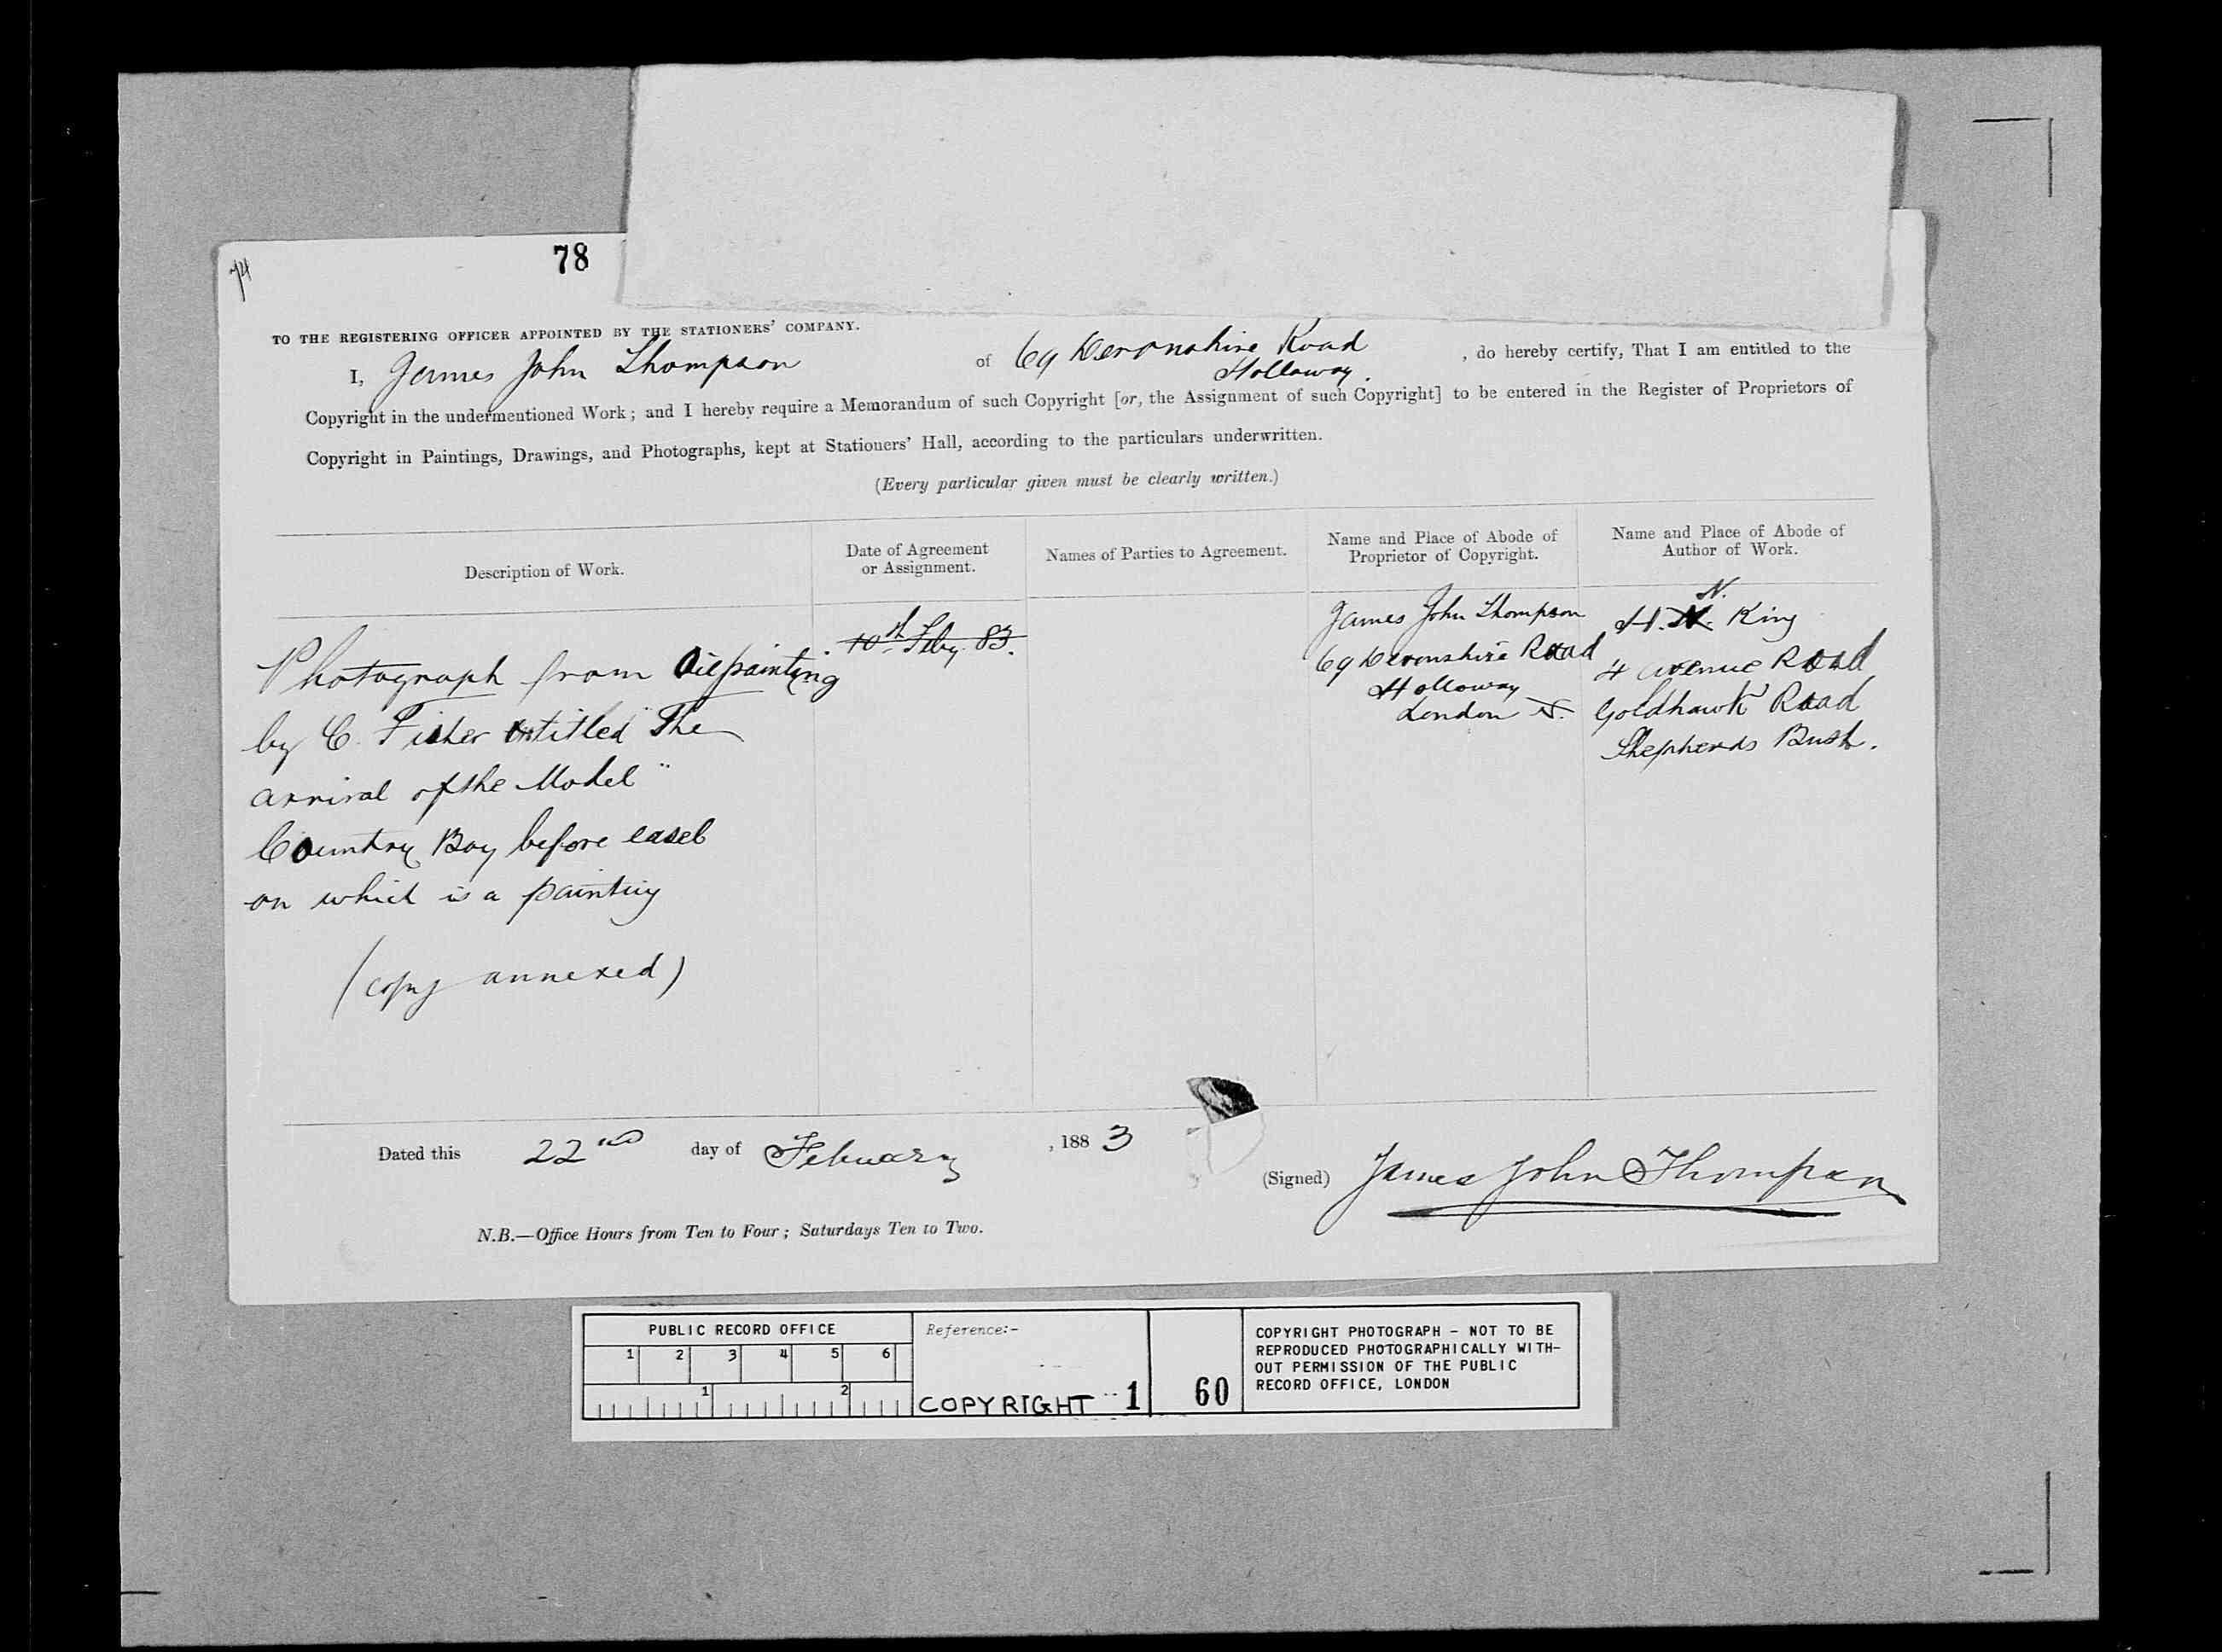 74
78
TO THE REGISTERING OFFICER APPOINTED BY THE STATIONERS' COMPANY.
I, James John Thompson of 69 Devonshire Road , do hereby certify, That I am entitled to the
Holloway.
Copyright in the undermentioned Work; and I hereby require a Memorandum of such Copyright [or, the Assignment of such Copyright] to be entered in the Register of Proprietors of
Copyright in Paintings, Drawings, and Photographs, kept at Stationers' Hall, according to the particulars underwritten.
(Every particular given must be clearly written.)
Description of Work.
Date of Agreement
or Assignment.
Names of Parties to Agreement.
Name and Place of Abode of
Proprietor of Copyright.
Name and Place of Abode of
Author of Work.
Photograph from Oilpainting
by C. Fisher entitled "The
arrival of the Model"
Country Boy before easel
on which is a painting
(copy annexed)
10th Feby. 83.
James John Thompson
69 Devonshire Road
Holloway
London N.
N.
H. N. King
4 avenue Road
Goldhawk Road
Shepherds Bush.
Dated this 22nd day of Febuary , 1883
(Signed) James John Thompson
N.B.—Office Hours from Ten to Four; Saturdays Ten to Two.
PUBLIC RECORD OFFICE
1 2 3 4 5 6
1 2
Reference:-
COPYRIGHT 1
60
COPYRIGHT PHOTOGRAPH - NOT TO BE
REPRODUCED PHOTOGRAPHICALLY WITH-
OUT PERMISSION OF THE PUBLIC
RECORD OFFICE, LONDON